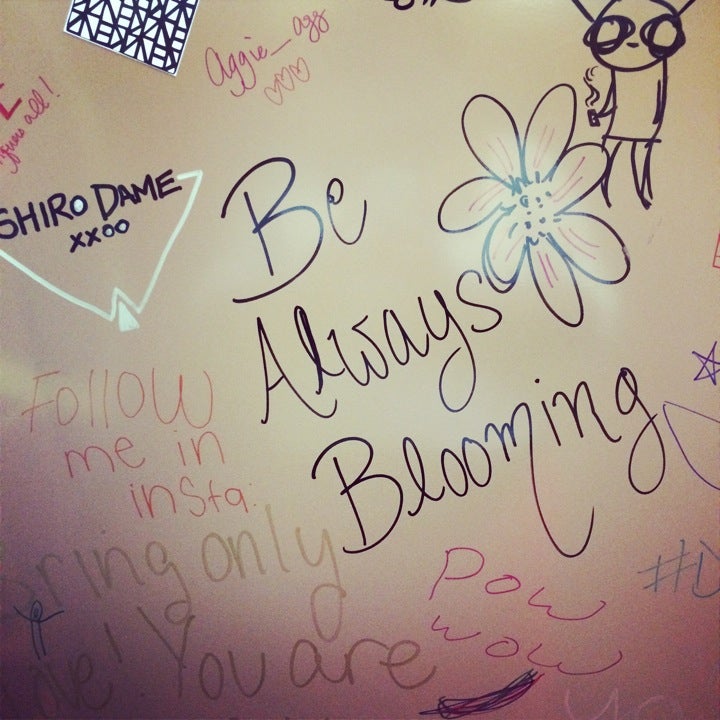 Aggie_agg
SHIRO DAME
xxoo
Be
Always
Blooming
Follow
me in
insta:
only
You are
Pow
wow
#D